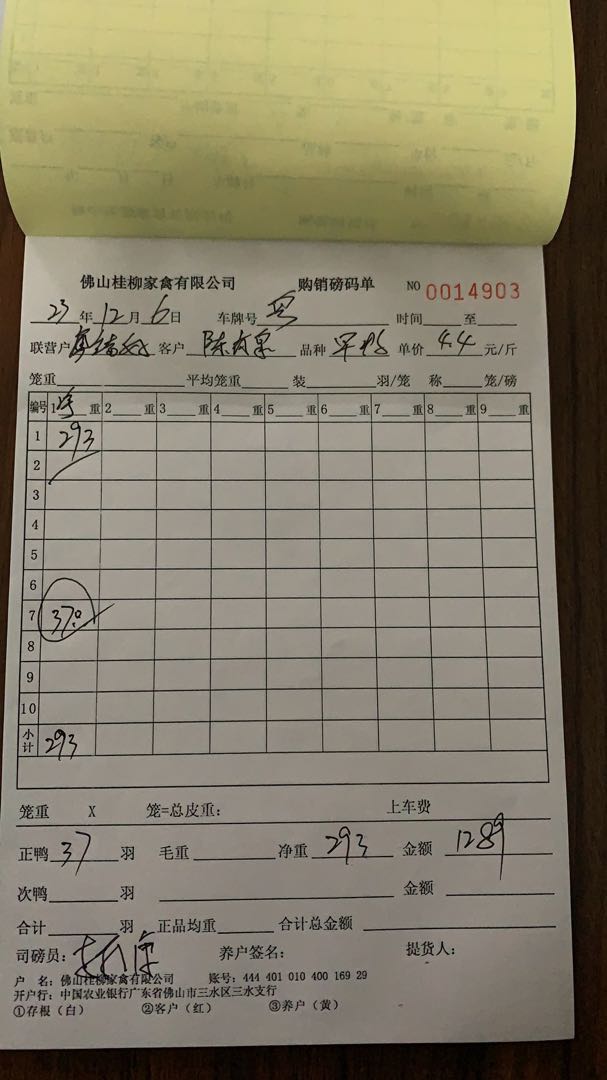 佛山桂柳家禽有限公司 购销磅码单 NO 0014903
23年12月6日 车牌号 时间 至
联营户 客户 陈 品种 单价 4.4 元/斤
笼重 平均笼重 装 羽/笼 称 笼/磅
编号 1 重 2 重 3 重 4 重 5 重 6 重 7 重 8 重 9 重
1 293
2
3
4
5
6
7 37
8
9
10
小计 293
笼重 X 笼=总皮重: 上车费
正鸭 37 羽 毛重 净重 293 金额 1289
次鸭 羽 金额
合计 羽 正品均重 合计总金额
司磅员: 养户签名: 提货人:
户 名: 佛山桂柳家禽有限公司 账号: 444 401 010 400 169 29
开户行: 中国农业银行广东省佛山市三水区三水支行
①存根(白) ②客户(红) ③养户(黄)